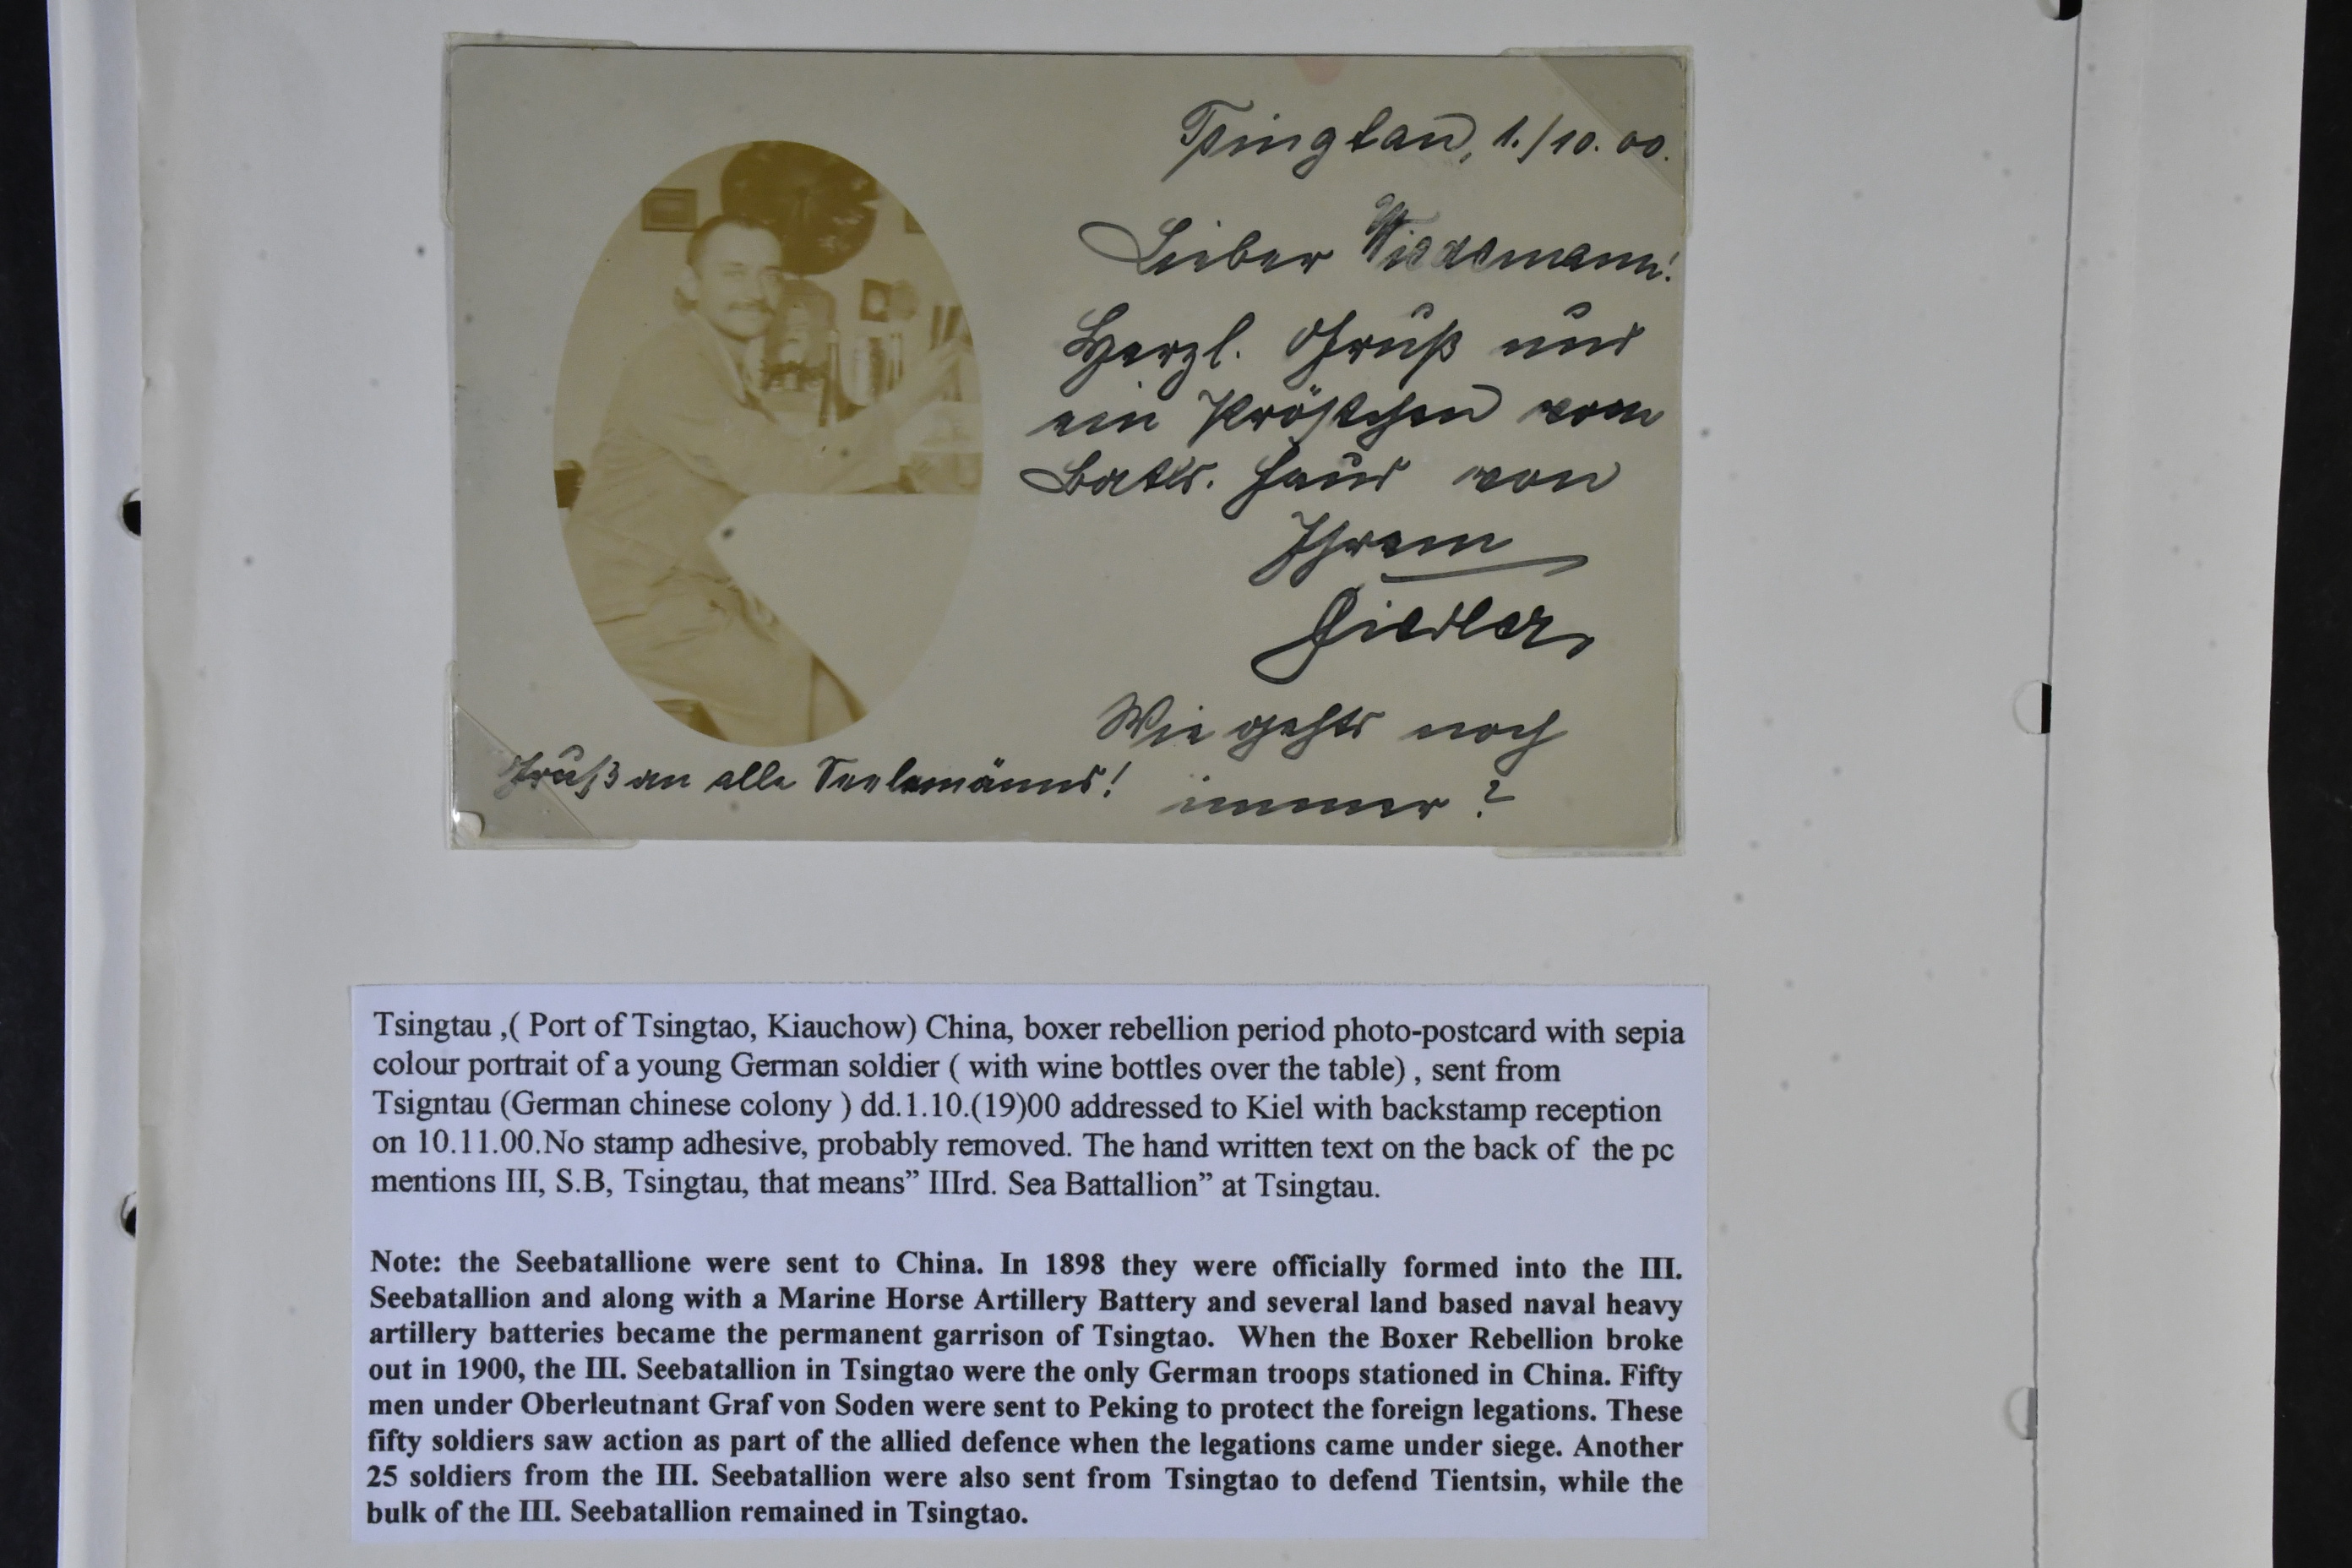 Tsingtau, 1./10.00.
Lieber Wiedemann!
Herzl. Gruß und
ein Prößtchen vom
Batls. von
Ihrem
Fiedler,
Wie gehts noch
immer?
Gruß an alle
Tsingtau ,( Port of Tsingtao, Kiauchow) China, boxer rebellion period photo-postcard with sepia
colour portrait of a young German soldier ( with wine bottles over the table) , sent from
Tsigntau (German chinese colony ) dd.1.10.(19)00 addressed to Kiel with backstamp reception
on 10.11.00.No stamp adhesive, probably removed. The hand written text on the back of the pc
mentions III, S.B, Tsingtau, that means” IIIrd. Sea Battallion” at Tsingtau.
Note: the Seebatallione were sent to China. In 1898 they were officially formed into the III.
Seebatallion and along with a Marine Horse Artillery Battery and several land based naval heavy
artillery batteries became the permanent garrison of Tsingtao. When the Boxer Rebellion broke
out in 1900, the III. Seebatallion in Tsingtao were the only German troops stationed in China. Fifty
men under Oberleutnant Graf von Soden were sent to Peking to protect the foreign legations. These
fifty soldiers saw action as part of the allied defence when the legations came under siege. Another
25 soldiers from the III. Seebatallion were also sent from Tsingtao to defend Tientsin, while the
bulk of the III. Seebatallion remained in Tsingtao.